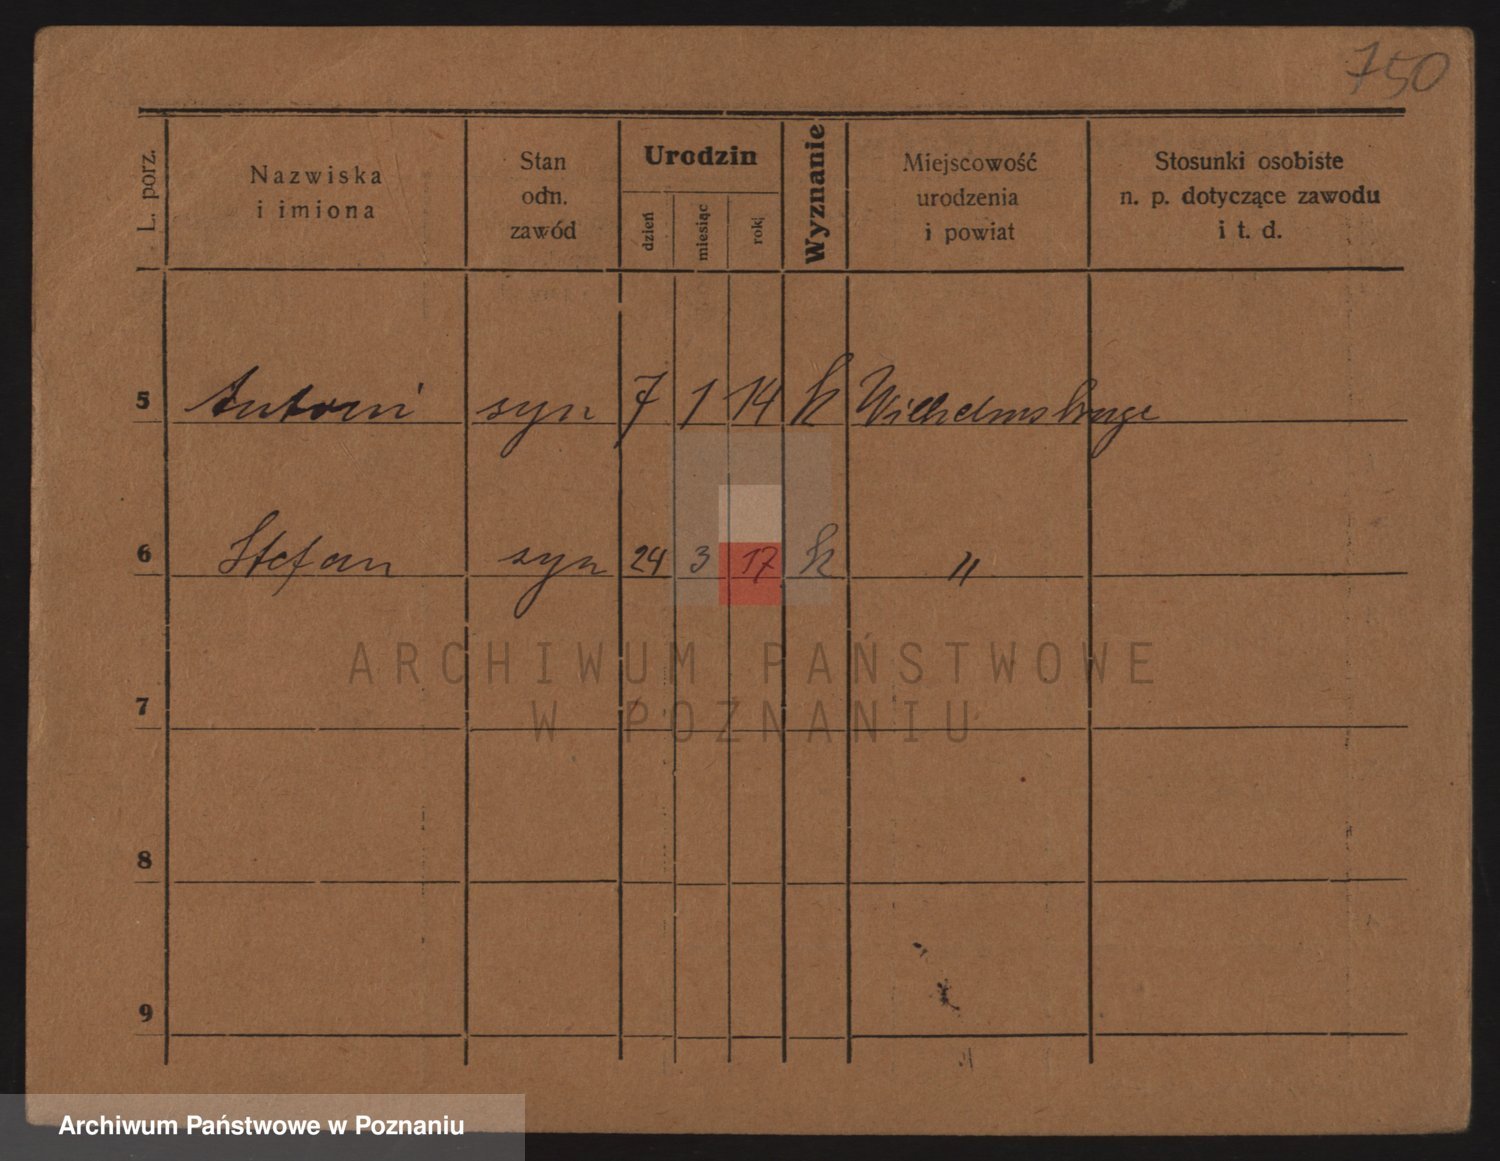 750
L. porz.
Nazwiska
i imiona
Stan
odn.
zawód
Urodzin
dzień
miesiąc
rok
Wyznanie
Miejscowość
urodzenia
i powiat
Stosunki osobiste
n. p. dotyczące zawodu
i t. d.
5 Antoni syn 7 1 14 k
6 Stefan syn 24 3 17 k "
7
8
9
ARCHIWUM PAŃSTWOWE
W POZNANIU
Archiwum Państwowe w Poznaniu